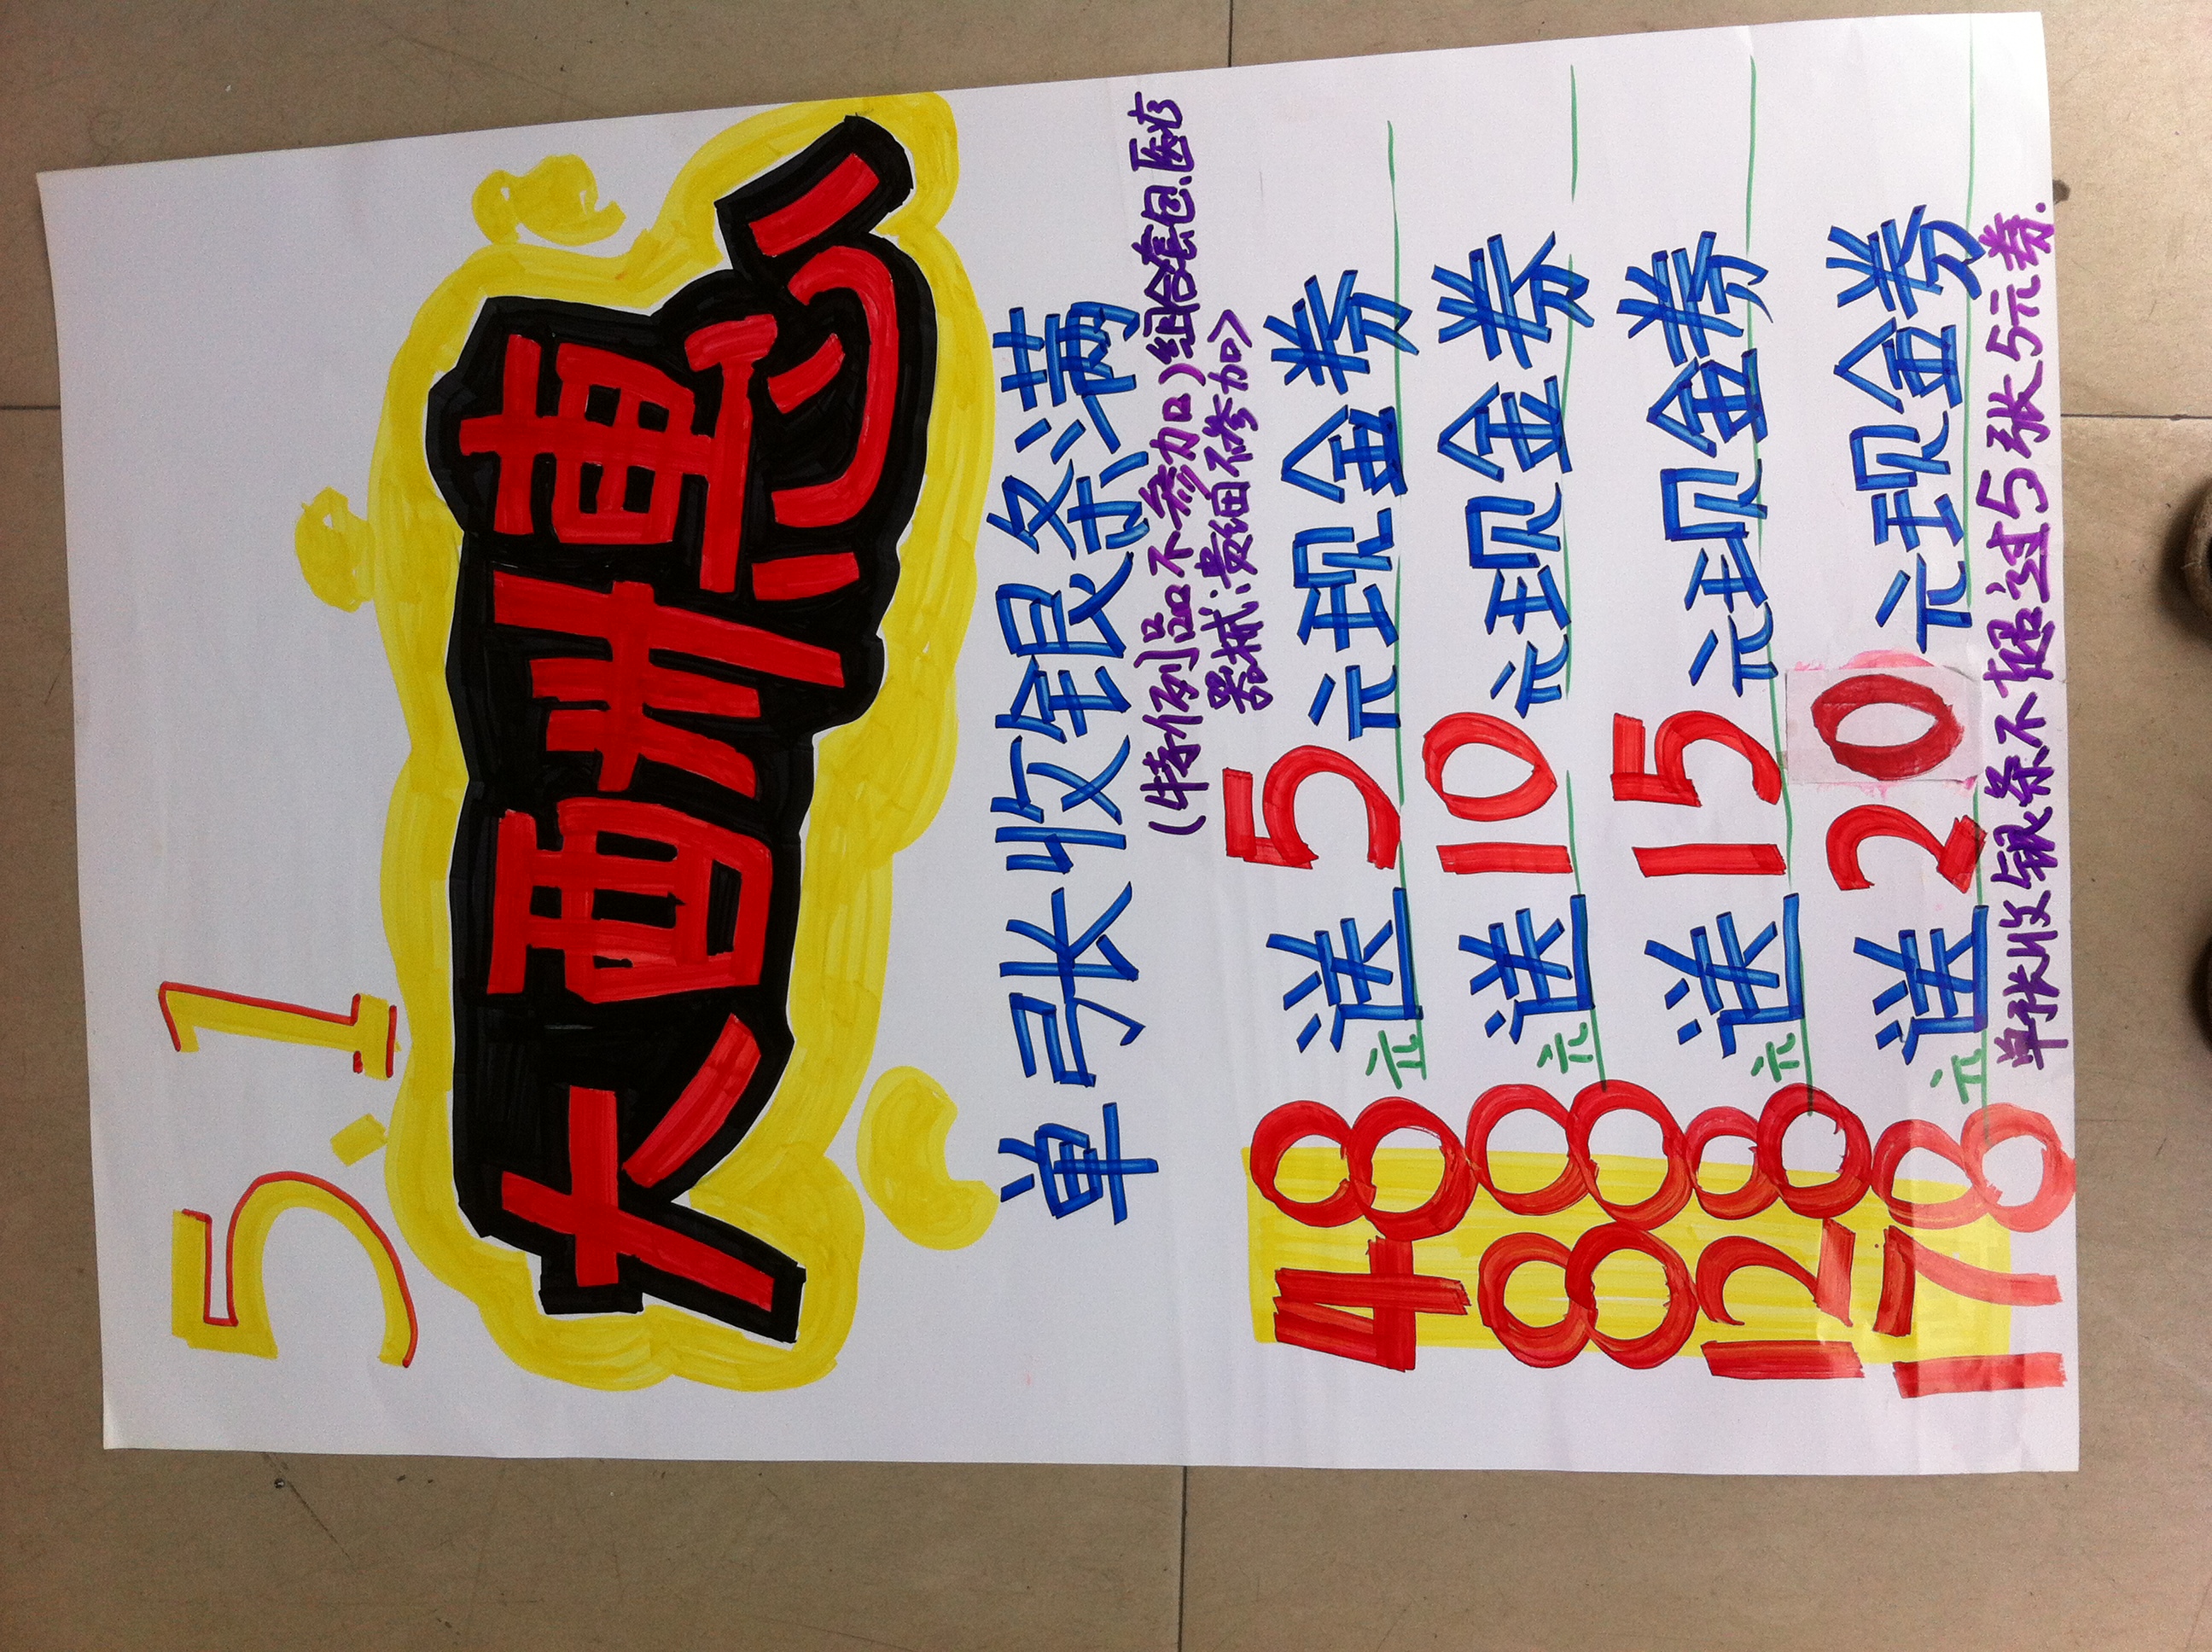 5.1
大酬惠
单张收银条满
(特价列品不参加)组合套包.医疗
器械;贵细不参加>
48元送5元现金券
88元送10元现金券
128元送15元现金券
178元送20元现金券
单张收银条不超过5张5元券.